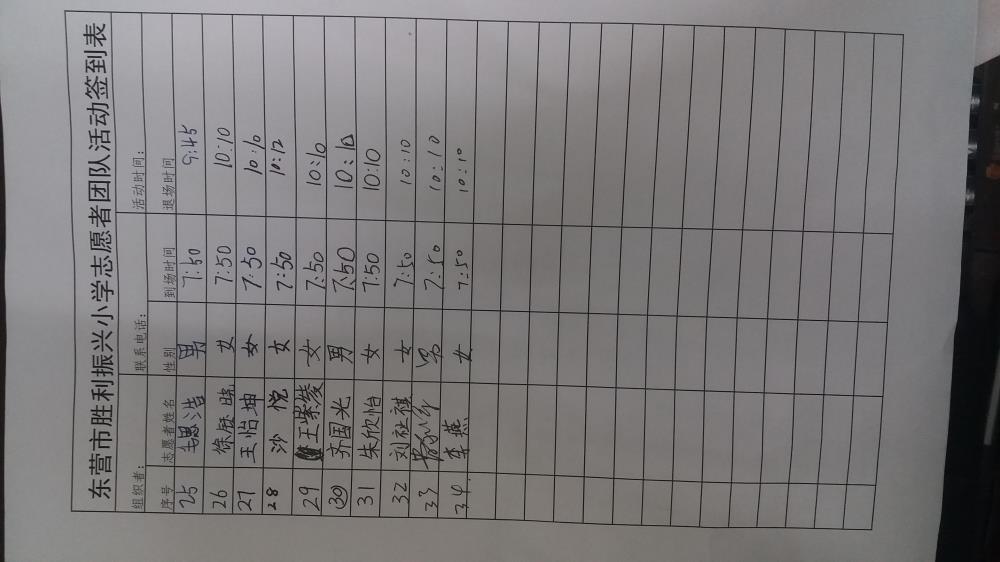 东营市胜利振兴小学志愿者团队活动签到表
组织者： 联系电话： 活动时间：
序号 志愿者姓名 性别 到场时间 退场时间
25 浩 男 7:50 9:45
26 徐 晓 女 7:50 10:10
27 王怡坤 女 7:50 10:10
28 沙悦 女 7:50 10:12
29 王紫凌 女 7:50 10:10
30 齐国光 男 7:50 10:10
31 朱欣怡 女 7:50 10:10
32 刘祉祺 女 7:50 10:10
33 男 7:50 10:10
34. 李燕 女 7:50 10:10